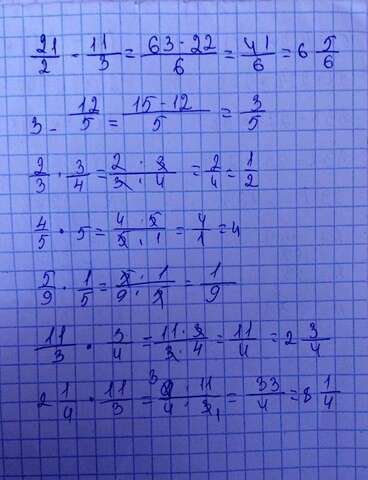 21/2 - 11/3 = 63-22/6 = 41/6 = 6 5/6
3 - 12/5 = 15-12/5 = 3/5
2/3 · 3/4 = 2·3/3·4 = 2/4 = 1/2
4/5 · 5 = 4·5/5·1 = 4/1 = 4
5/9 · 1/5 = 5·1/9·5 = 1/9
11/3 · 3/4 = 11·3/3·4 = 11/4 = 2 3/4
2 1/4 · 11/3 = 3 9·11/4·3 1 = 33/4 = 8 1/4